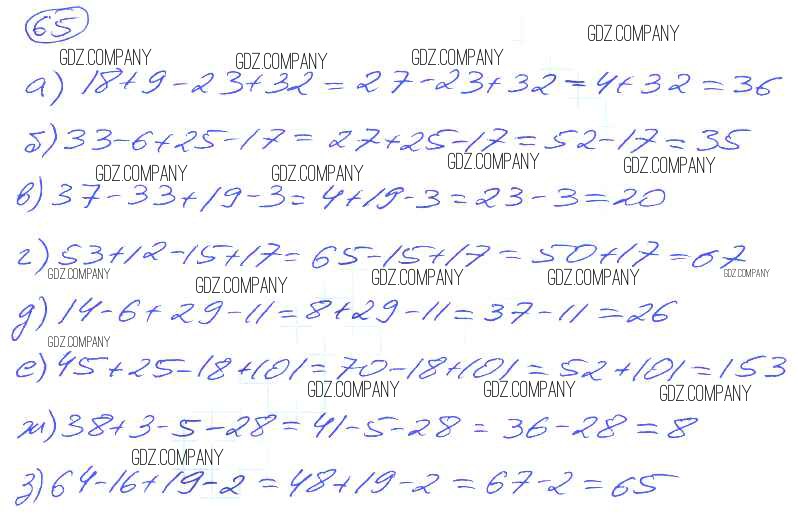 65
GDZ.COMPANY
GDZ.COMPANY GDZ.COMPANY GDZ.COMPANY
а) 18+9-23+32=27-23+32=4+32=36
б) 33-6+25-17=27+25-17=52-17=35
GDZ.COMPANY GDZ.COMPANY GDZ.COMPANY GDZ.COMPANY
в) 37-33+19-3=4+19-3=23-3=20
г) 53+12-15+17=65-15+17=50+17=67
GDZ.COMPANY GDZ.COMPANY GDZ.COMPANY GDZ.COMPANY GDZ.COMPANY
д) 14-6+29-11=8+29-11=37-11=26
GDZ.COMPANY
е) 45+25-18+101=70-18+101=52+101=153
GDZ.COMPANY GDZ.COMPANY GDZ.COMPANY
ж) 38+3-5-28=41-5-28=36-28=8
GDZ.COMPANY
з) 64-16+19-2=48+19-2=67-2=65